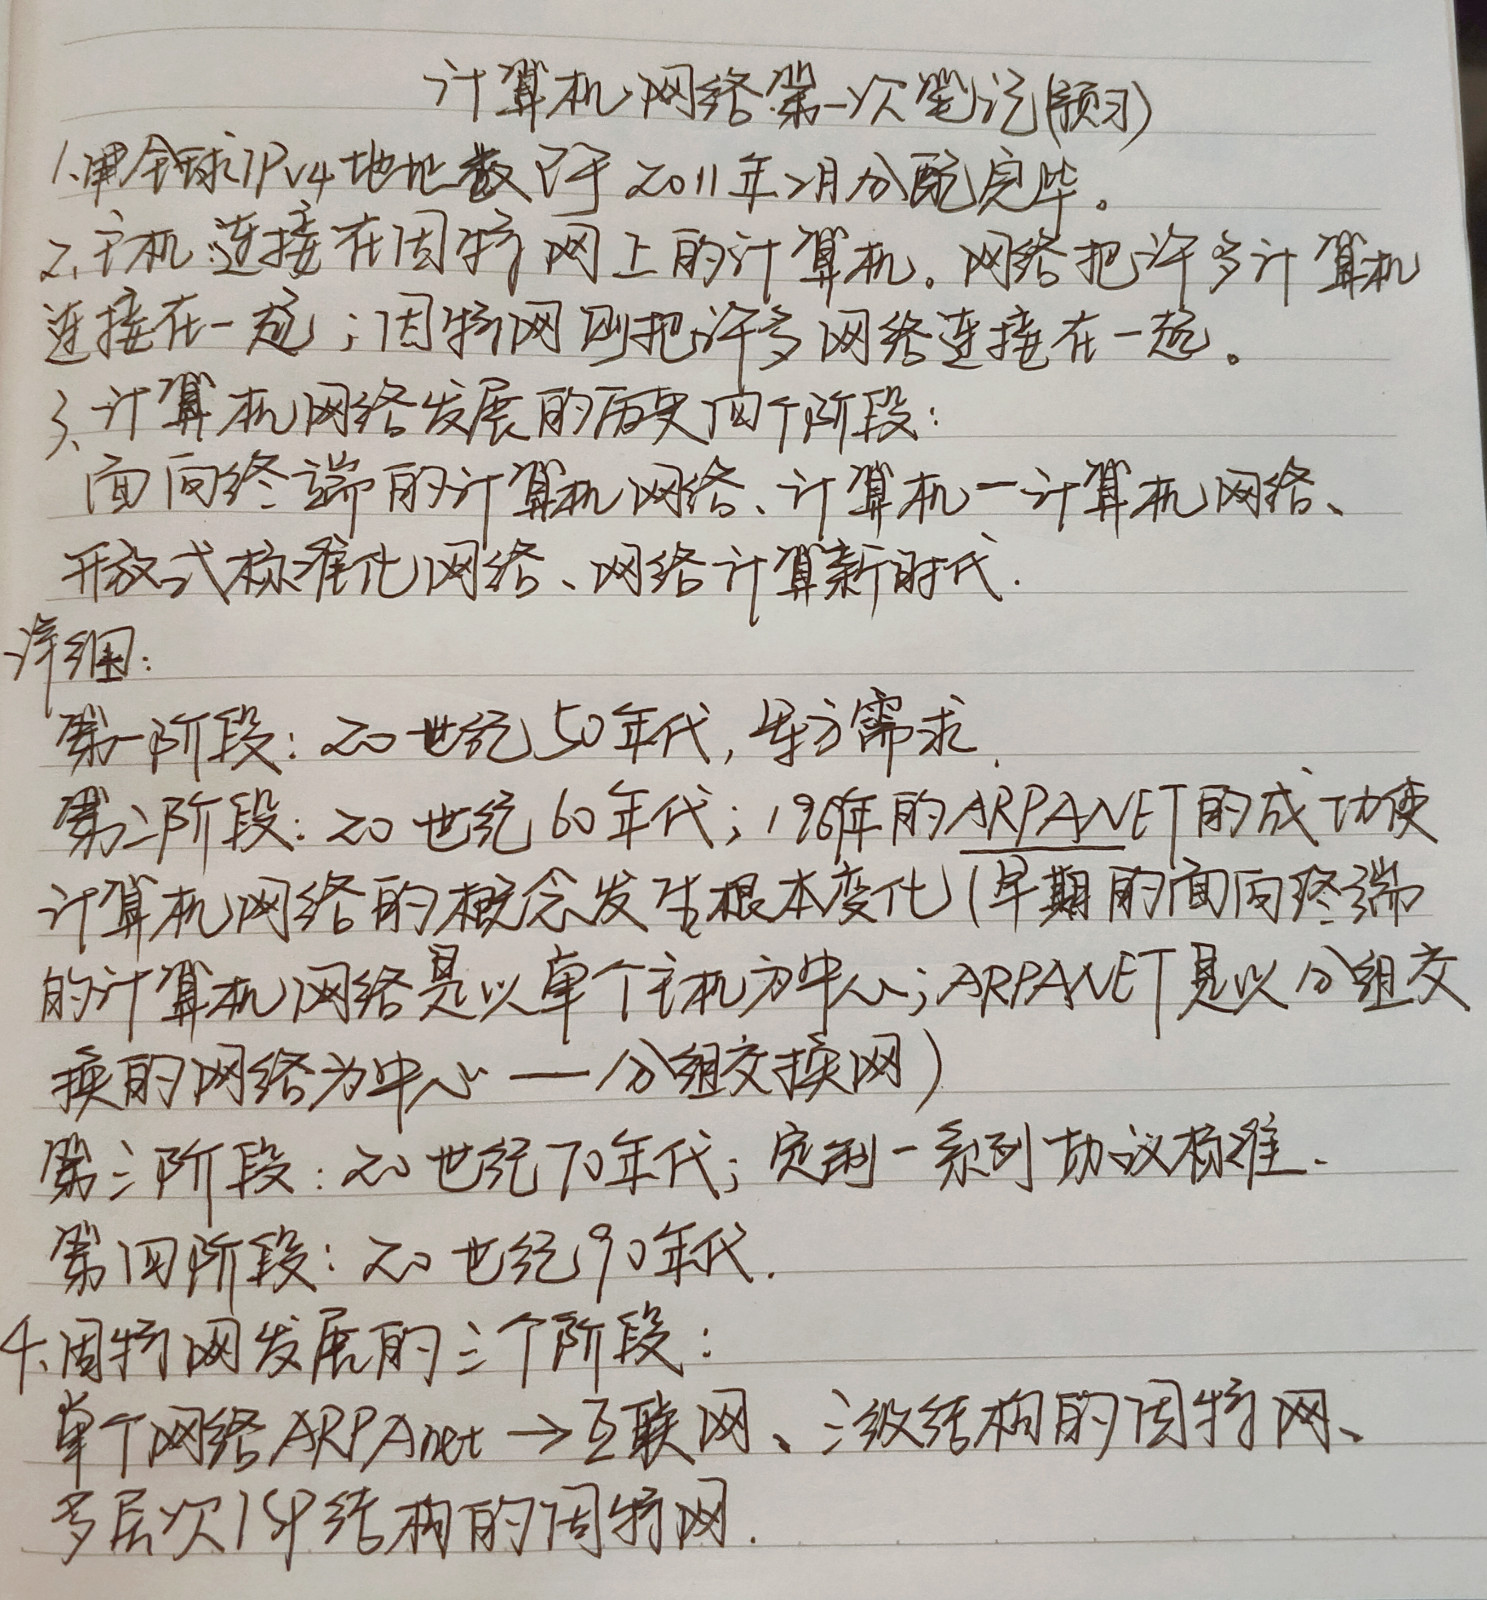 计算机网络第一次笔记(预习)
1、全球IPv4地址数已于2011年2月分配完毕。
2、主机:连接在因特网上的计算机。网络把许多计算机
连接在一起;因特网则把许多网络连接在一起。
3、计算机网络发展的历史四个阶段:
面向终端的计算机网络、计算机一计算机网络、
开放式标准化网络、网络计算新时代.
详细:
第一阶段:20世纪50年代,军方需求.
第二阶段:20世纪60年代;1969年的ARPANET的成功使
计算机网络的概念发生根本变化(早期的面向终端
的计算机网络是以单个主机为中心;ARPANET是以分组交
换的网络为中心——分组交换网)
第三阶段:20世纪70年代;定制一系列协议标准.
第四阶段:20世纪90年代.
4、因特网发展的三个阶段:
单个网络ARPAnet→互联网、三级结构的因特网、
多层次ISP结构的因特网.